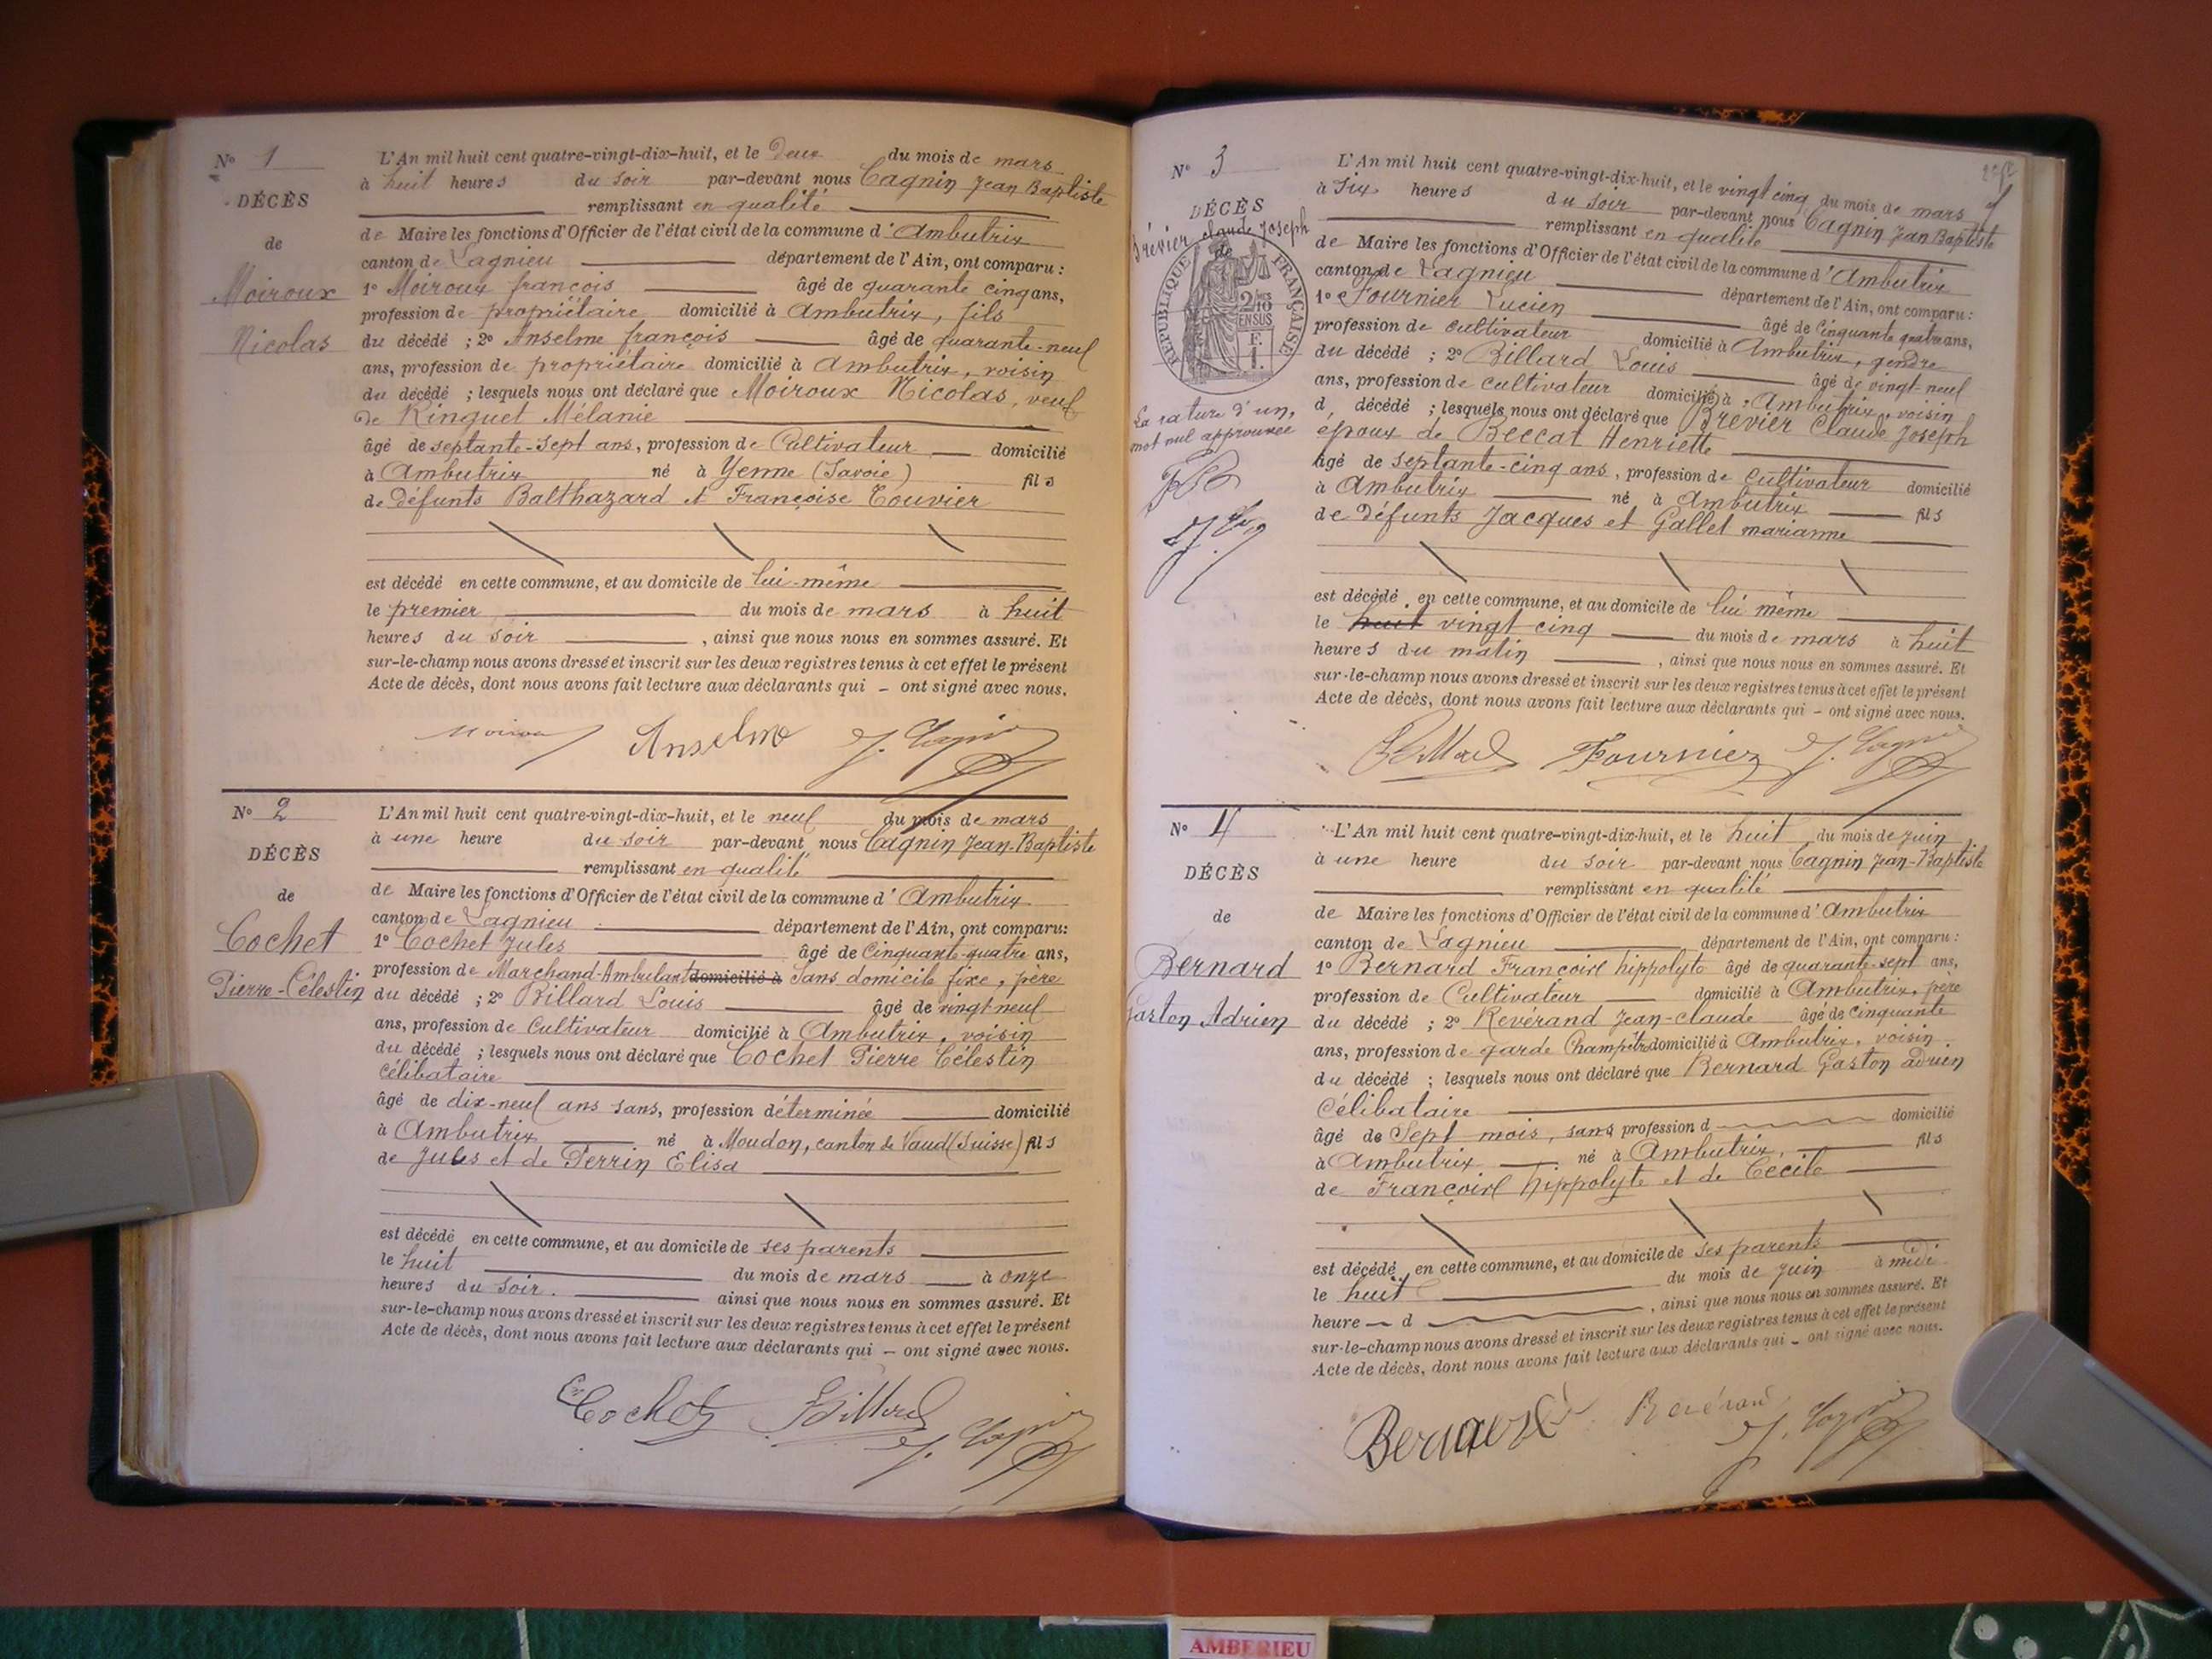 N° 1
DÉCÈS
de
Moiroux
Nicolas
L'An mil huit cent quatre-vingt-dix-huit, et le Deux du mois de mars
à huit heures du soir par-devant nous Cagnin Jean Baptiste
remplissant en qualité
de Maire les fonctions d'Officier de l'état civil de la commune d'Ambutrix
canton de Lagnieu département de l'Ain, ont comparu :
1° Moiroux françois âgé de quarante cinq ans,
profession de propriétaire domicilié à Ambutrix, fils
du décédé ; 2° Anselme françois âgé de quarante-neuf
ans, profession de propriétaire domicilié à Ambutrix, voisin
du décédé ; lesquels nous ont déclaré que Moiroux Nicolas, veuf
de Ringuet Mélanie
âgé de septante-sept ans, profession de Cultivateur domicilié
à Ambutrix né à Yenne (Savoie) fils
de défunts Balthazard et Françoise Touvier
est décédé en cette commune, et au domicile de lui-même
le premier du mois de mars à huit
heures du soir , ainsi que nous nous en sommes assuré. Et
sur-le-champ nous avons dressé et inscrit sur les deux registres tenus à cet effet le présent
Acte de décès, dont nous avons fait lecture aux déclarants qui – ont signé avec nous.
Anselme J. Cagnin
N° 2
DÉCÈS
de
Cochet
Pierre-Célestin
L'An mil huit cent quatre-vingt-dix-huit, et le neuf du mois de mars
à une heure du soir par-devant nous Cagnin Jean-Baptiste
remplissant en qualité
de Maire les fonctions d'Officier de l'état civil de la commune d'Ambutrix
canton de Lagnieu département de l'Ain, ont comparu:
1° Cochet Jules âgé de Cinquante-quatre ans,
profession de Marchand-Ambulant domicilié à Sans domicile fixe, père
du décédé ; 2° Billard Louis âgé de vingt neuf
ans, profession de Cultivateur domicilié à Ambutrix, voisin
du décédé ; lesquels nous ont déclaré que Cochet Pierre Célestin
célibataire
âgé de dix-neuf ans sans, profession déterminée domicilié
à Ambutrix né à Moudon, canton de Vaud (Suisse) fils
de Jules et de Perrin Elisa
est décédé en cette commune, et au domicile de ses parents
le huit du mois de mars à onze
heures du soir. ainsi que nous nous en sommes assuré. Et
sur-le-champ nous avons dressé et inscrit sur les deux registres tenus à cet effet le présent
Acte de décès, dont nous avons fait lecture aux déclarants qui – ont signé avec nous.
Cochet Billard
J. Cagnin
N° 3
DÉCÈS
de
Brévier Claude Joseph
RÉPUBLIQUE FRANÇAISE
2/10
EN SUS
La rature d'un,
mot nul approuvée
L'An mil huit cent quatre-vingt-dix-huit, et le vingt cinq du mois de mars
à six heures du soir par-devant nous Cagnin Jean Baptiste
remplissant en qualité
de Maire les fonctions d'Officier de l'état civil de la commune d'Ambutrix
canton de Lagnieu département de l'Ain, ont comparu :
1° Fournier Lucien âgé de Cinquante quatre ans,
profession de cultivateur domicilié à Ambutrix, gendre
du décédé ; 2° Billard Louis âgé de vingt-neuf
ans, profession de cultivateur domicilié à Ambutrix, voisin
d décédé ; lesquels nous ont déclaré que Brévier Claude Joseph
époux de Beccat Henriette
âgé de septante-cinq ans, profession de Cultivateur domicilié
à Ambutrix né à Ambutrix fils
de défunts Jacques et Gallet marianne
est décédé en cette commune, et au domicile de lui même
le huit vingt cinq du mois de mars à huit
heures du matin , ainsi que nous nous en sommes assuré. Et
sur-le-champ nous avons dressé et inscrit sur les deux registres tenus à cet effet le présent
Acte de décès, dont nous avons fait lecture aux déclarants qui – ont signé avec nous.
Billard Fournier J. Cagnin
N° 4
DÉCÈS
de
Bernard
Gaston Adrien
L'An mil huit cent quatre-vingt-dix-huit, et le huit du mois de juin
à une heure du soir par-devant nous Cagnin Jean-Baptiste
remplissant en qualité
de Maire les fonctions d'Officier de l'état civil de la commune d'Ambutrix
canton de Lagnieu département de l'Ain, ont comparu :
1° Bernard Françoisl hippolyte âgé de quarante-sept ans,
profession de Cultivateur domicilié à Ambutrix, père
du décédé ; 2° Revérand Jean-claude âgé de cinquante
ans, profession de garde Champêtre domicilié à Ambutrix, voisin
du décédé ; lesquels nous ont déclaré que Bernard Gaston adrien
Célibataire
âgé de Sept mois, sans profession d domicilié
à Ambutrix né à Ambutrix, fils
de Françoisl hippolyte et de Cécile
est décédé en cette commune, et au domicile de ses parents
le huit du mois de juin à midi
heure d , ainsi que nous nous en sommes assuré. Et
sur-le-champ nous avons dressé et inscrit sur les deux registres tenus à cet effet le présent
Acte de décès, dont nous avons fait lecture aux déclarants qui – ont signé avec nous.
Bernard Revérand
J. Cagnin
AMBERIEU